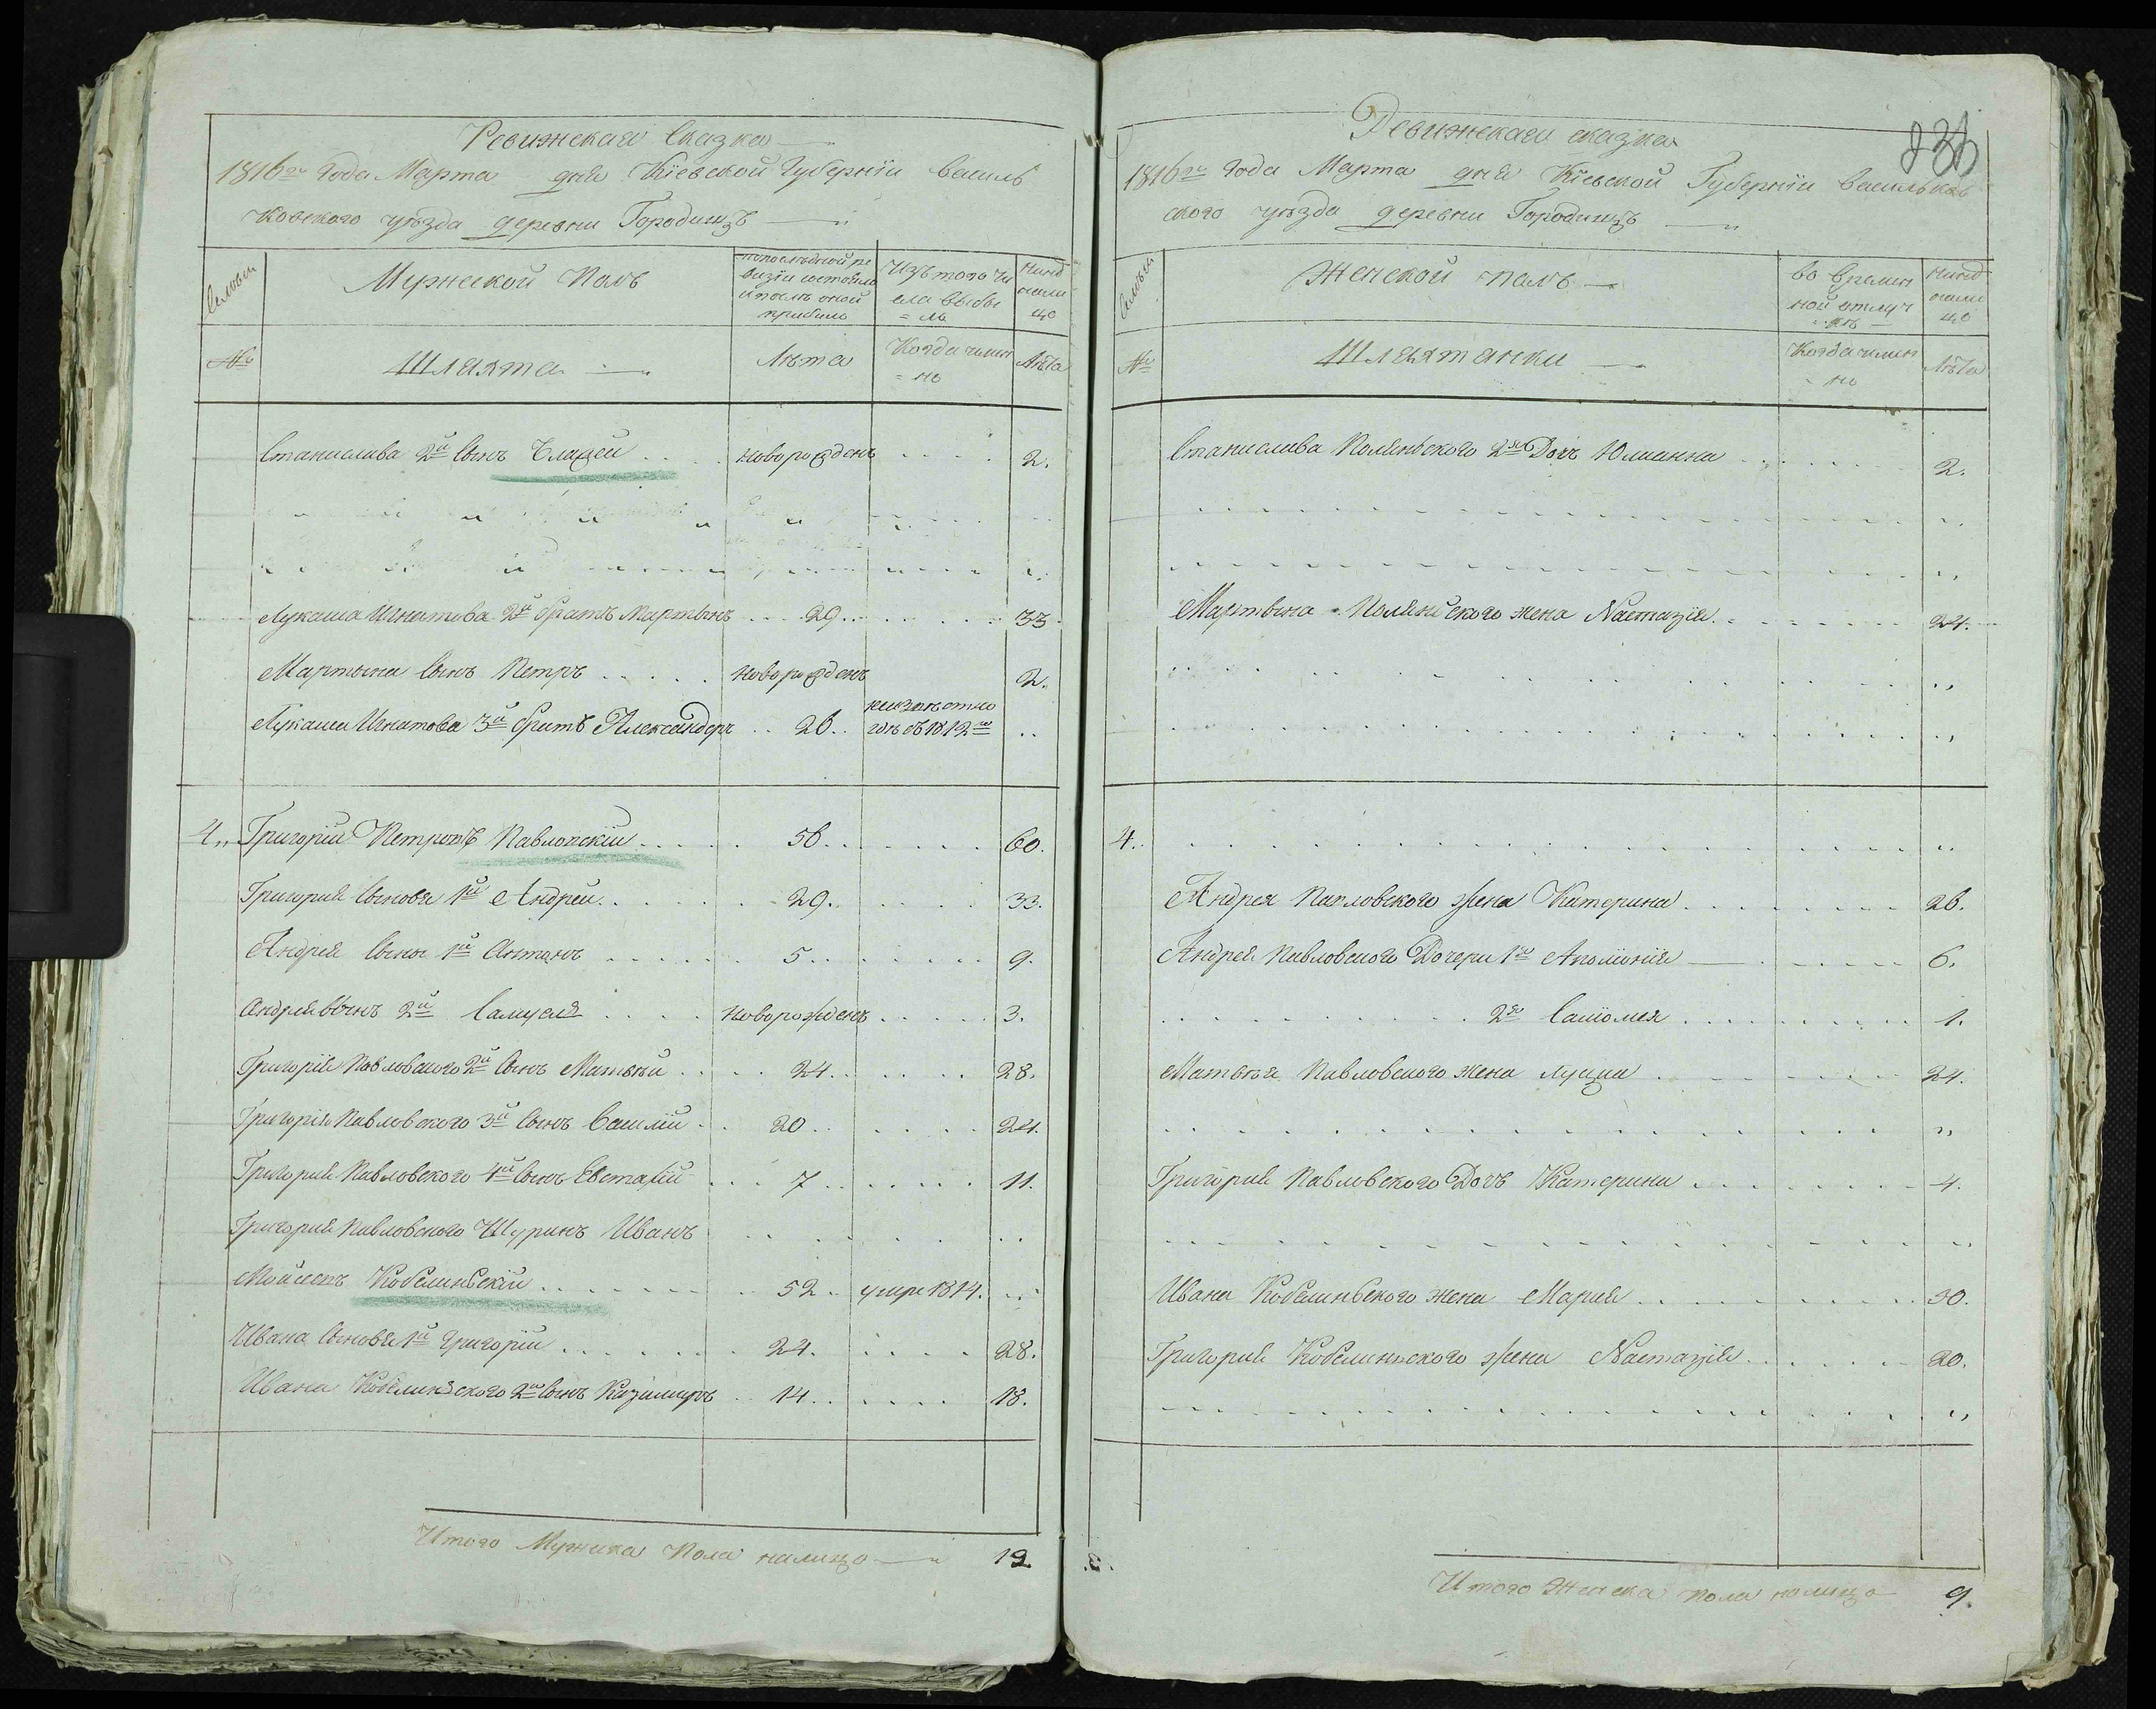 Ревижская Сказка
1816го Года Марта дня Кіевской Губерніи Василь
ковского уѣзда деревни Городищъ
Семьи
Мужеской Полъ
попослѣдней ре
визіи состояло
и послѣ оной
прибыло
Изъ того чи
сла выбы
= ло
Нынѣ
нали
цо
№
Шляхта
Лѣта
Когда имян
= но
Лѣта
Станислава 2й Сынъ новорожденъ 2.
Лукаша Игнатова 2й братъ Мартынъ 29. 33
Мартына Сынъ Петръ новорожденъ 2.
Лукаша Игнатова 3й братъ Александръ 26. съ 1812го
4. Григорій Петровъ Павловскій 56. 60.
Григорія Сыновья 1й Андрей 29. 33.
Андрея Сынъ 1й Антонъ 5. 9.
Андрея Сынъ 2й Самуель новорожденъ 3.
Григорія Павловского 2й Сынъ Матвѣй 24. 28.
Григорія Павловского 3й Сынъ Василій 20. 24.
Григорія Павловского 4й Сынъ Евстафій 7. 11.
Григорія Павловского Шуринъ Иванъ
Кобелинскій 52. умре 1814.
Ивана Сыновья 1й Григорій 24. 28.
Ивана Кобелинского 2й Сынъ Казимиръ 14. 18.
Итого Мужеска Пола налицо 12
Ревижская сказка
1816го Года Марта дня Кіевской Губерніи Васильков
ского уѣзда деревни Городищъ
Семьи
Женской полъ
во времян
ной отлуч
кѣ
Нынѣ
нали
цо
№
Шляхтянки
Когда имян
= но
Лѣта
Станислава Полянского 2я Дочь Юлианна 2.
Мартына Полянского жена Настазія 24.
4.
Андрея Павловского жена Катерина 26.
Андрея Павловского Дочери 1я Аполионія 6.
2я Саломея 1.
Матвѣя Павловского жена Луция 24.
Григорія Павловского Дочь Катерина 4.
Ивана Кобелинского жена Марія 50.
Григорія Кобелинского жена Настазія 20.
Итого Женска пола налицо 9.